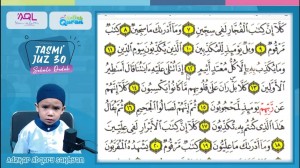 AQL
Quran
TASMI'
JUZ 30
كَلَّآ إِنَّ كِتَٰبَ ٱلْفُجَّارِ لَفِى سِجِّينٍ ٧ وَمَآ أَدْرَىٰكَ مَا سِجِّينٌ ٨ كِتَٰبٌ
مَّرْقُومٌ ٩ وَيْلٌ يَوْمَئِذٍ لِّلْمُكَذِّبِينَ ١٠ ٱلَّذِينَ يُكَذِّبُونَ بِيَوْمِ ٱلدِّينِ ١١
وَمَا يُكَذِّبُ بِهِۦٓ إِلَّا كُلُّ مُعْتَدٍ أَثِيمٍ ١٢ إِذَا تُتْلَىٰ عَلَيْهِ ءَايَٰتُنَا قَالَ أَسَٰطِيرُ
ٱلْأَوَّلِينَ ١٣ كَلَّا بَلْ رَانَ عَلَىٰ قُلُوبِهِم مَّا كَانُوا۟ يَكْسِبُونَ ١٤ كَلَّآ إِنَّهُمْ
عَن رَّبِّهِمْ يَوْمَئِذٍ لَّمَحْجُوبُونَ ١٥ ثُمَّ إِنَّهُمْ لَصَالُوا۟ ٱلْجَحِيمِ ١٦ ثُمَّ يُقَالُ
هَٰذَا ٱلَّذِى كُنتُم بِهِۦ تُكَذِّبُونَ ١٧ كَلَّآ إِنَّ كِتَٰبَ ٱلْأَبْرَارِ لَفِى عِلِّيِّينَ
١٨ وَمَآ أَدْرَىٰكَ مَا عِلِّيُّونَ ١٩ كِتَٰبٌ مَّرْقُومٌ ٢٠ يَشْهَدُهُ ٱلْمُقَرَّبُونَ